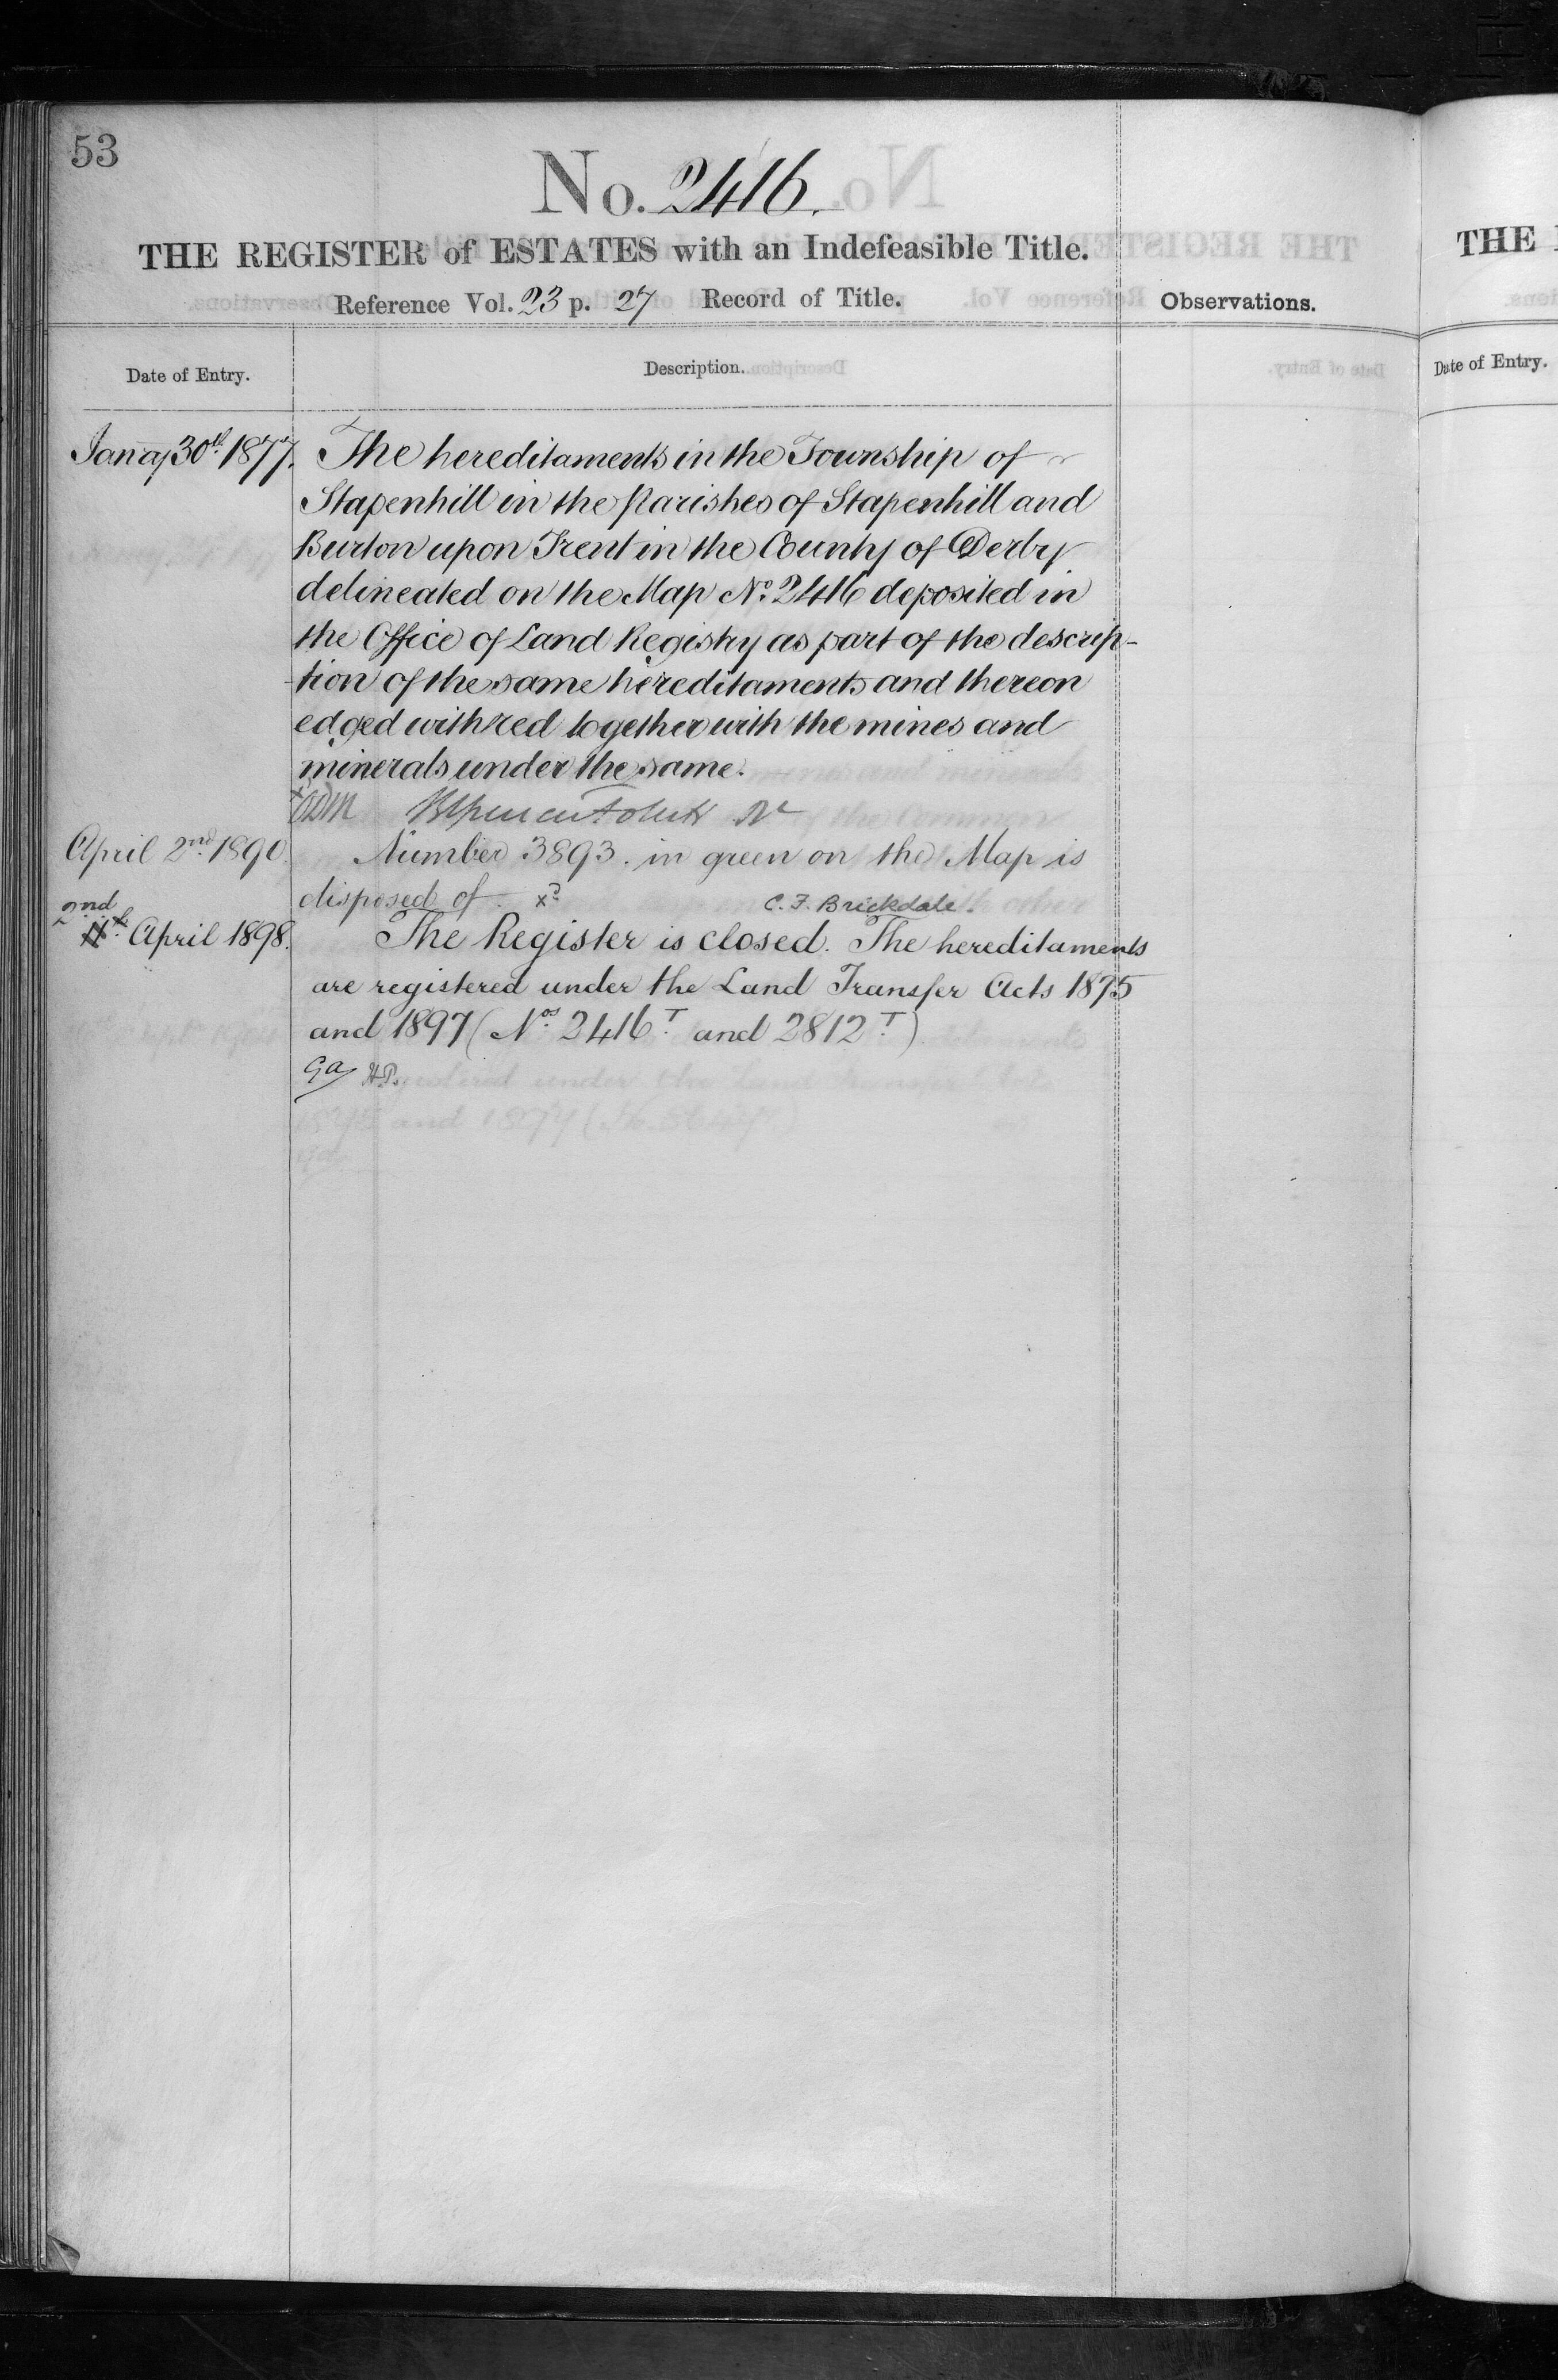 53
No. 2416.
THE REGISTER of ESTATES with an Indefeasible Title.
Reference Vol. 23 p. 27 Record of Title.
Observations.
Date of Entry.
Description.
Janay 30th 1877.
The hereditaments in the Township of
Stapenhill in the Parishes of Stapenhill and
Burton upon Trent in the County of Derby
delineated on the Map No. 2416 deposited in
the Office of Land Registry as part of the descrip-
-tion of the same hereditaments and thereon
edged with red together with the mines and
minerals under the same.
April 2nd 1890.
Number 3893. in green on the Map is
disposed of.
C. F. Brickdale.
2nd
April 1898.
The Register is closed. The hereditaments
are registered under the Land Transfer Acts 1875
and 1897 (Nos. 2416T and 2812T)
Ga H.P.
THE
Date of Entry.